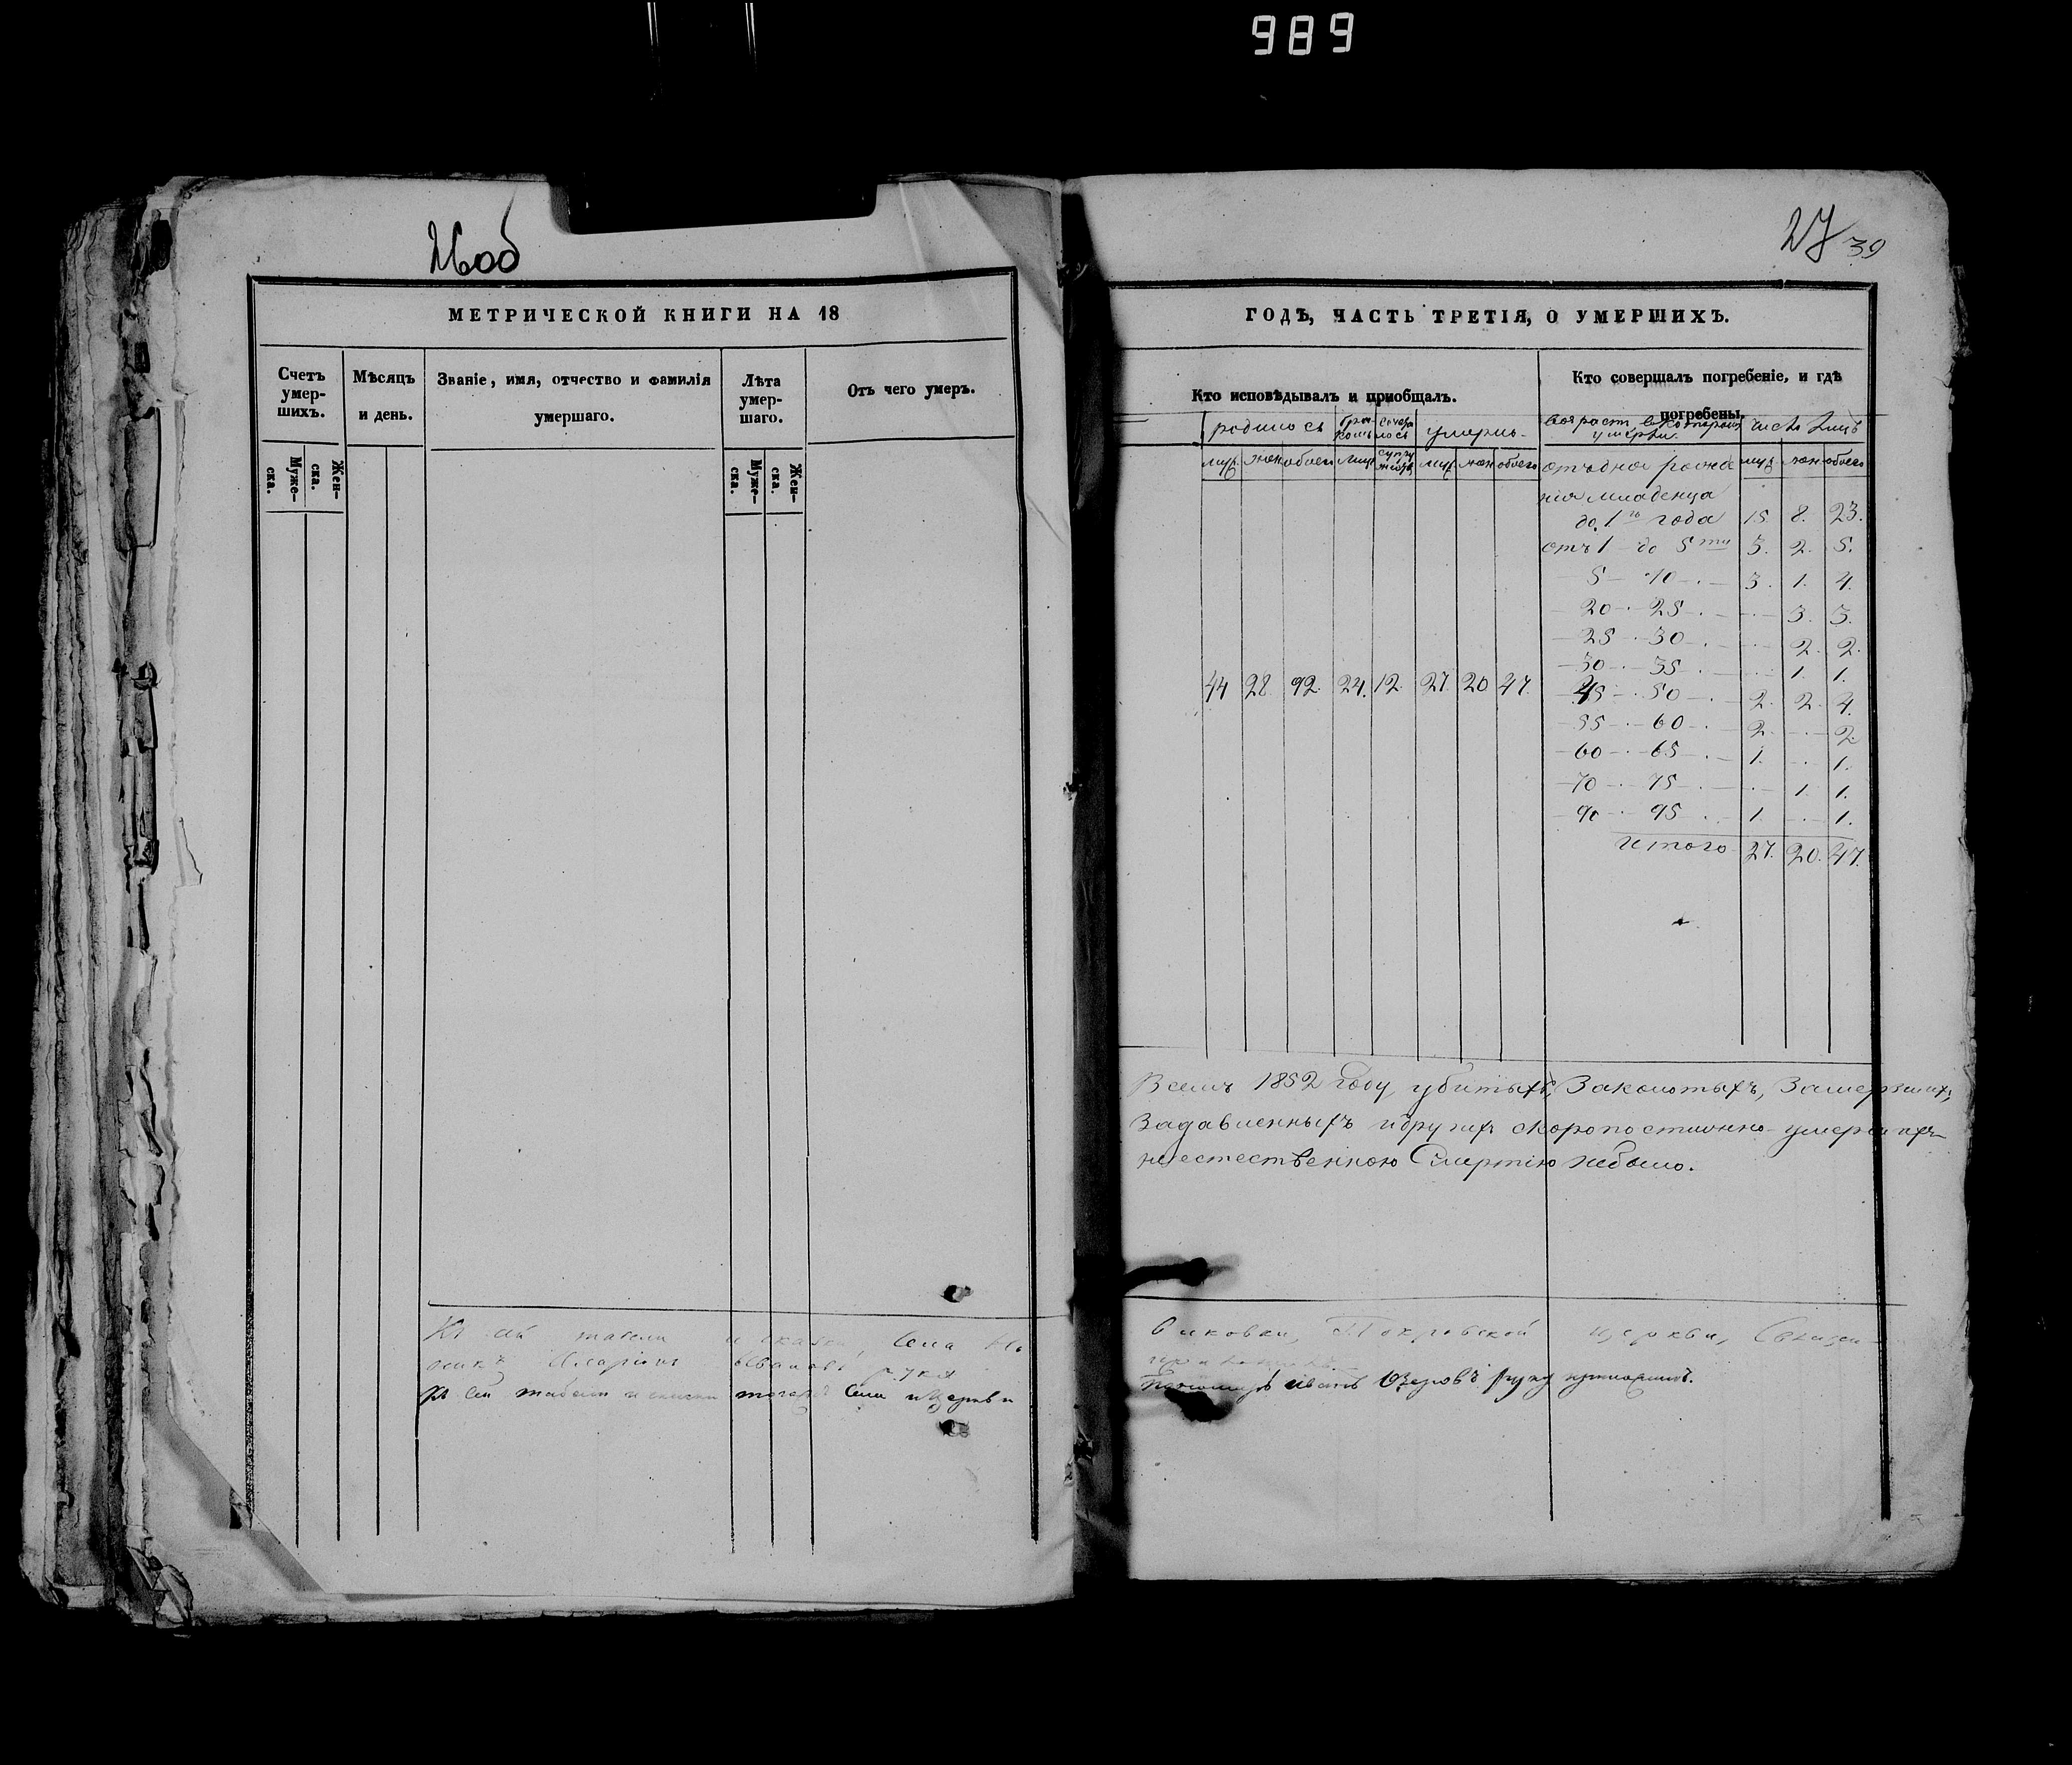 989
26об
27 39
МЕТРИЧЕСКОЙ КНИГИ НА 18
ГОДЪ, ЧАСТЬ ТРЕТІЯ, О УМЕРШИХЪ.
Счетъ умер-
шихъ.
Муже-
ска.
Жен-
ска.
Мѣсяцъ
и день.
Званіе, имя, отчество и фамилія
умершаго.
Лѣта
умер-
шаго.
Муже-
ска.
Жен-
ска.
Отъ чего умеръ.
Кто исповѣдывалъ и пріобщалъ.
Кто совершалъ погребеніе, и гдѣ
погребены.
родилось
умерло
возрастъ въ которомъ число лицъ
умерли
муж жен обоего муж жен обоего
муж жен обоего
младенца
до 1го года 15. 8. 23.
отъ 1 до 5ти 3. 2. 5.
5 — 10 3. 1. 4.
20 — 25 3. 3.
25 — 30 2. 2.
30 — 35 1. 1.
44 28 92. 24. 12. 27. 20 47.
45 — 50 2. 2. 4.
55 — 60 2. 2.
60 — 65 1. 1.
70 — 75 1. 1.
90 — 95 1. 1.
Итого 27. 20. 47.
Всемъ 1852 году убитыхъ, Заколотыхъ, Замерзшихъ,
Задавленныхъ и другихъ скоропостижно умершихъ
неестественною Смертію небыло.
Села
Покровской церкви, Священ-
никъ Иларіонъ Ивановъ руку
Къ сей табели тогожъ Села и Церкви
Пономарь Иванъ Озеровъ руку приложилъ.